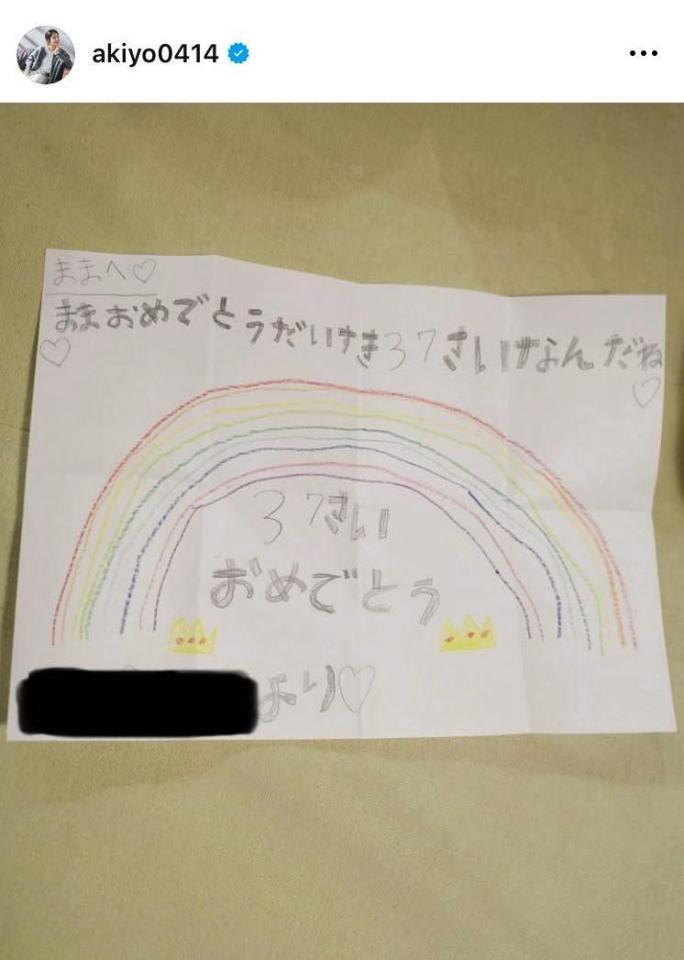 akiyo0414
ままへ♡
ままおめでとうだいすき37さいなんだね
♡
♡
37さい
おめでとう
より♡